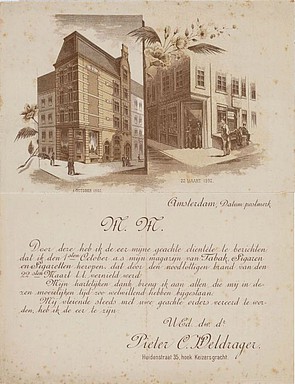 1 OCTOBER 1892.
22 MAART 1892.
Amsterdam, Datum postmerk
M. M.
Door deze heb ik de eer mijne geachte clientèle te berichten
dat ik den 1sten October a.s. mijn magazijn van Tabak, Sigaren
en Sigaretten heropen, dat door den noodlottigen brand van den
22sten Maart l.l. vernield werd.
Mijn hartelijken dank breng ik aan allen, die mij in de-
zen moeielijken tijd zoo welwillend hebben bijgestaan.
Mij vleiende steeds met uwe geachte orders vereerd te wor-
den, heb ik de eer te zijn
U.Ed. dw. dr.
Pieter C. Weldrager.
Huidenstraat 35, hoek Keizersgracht.